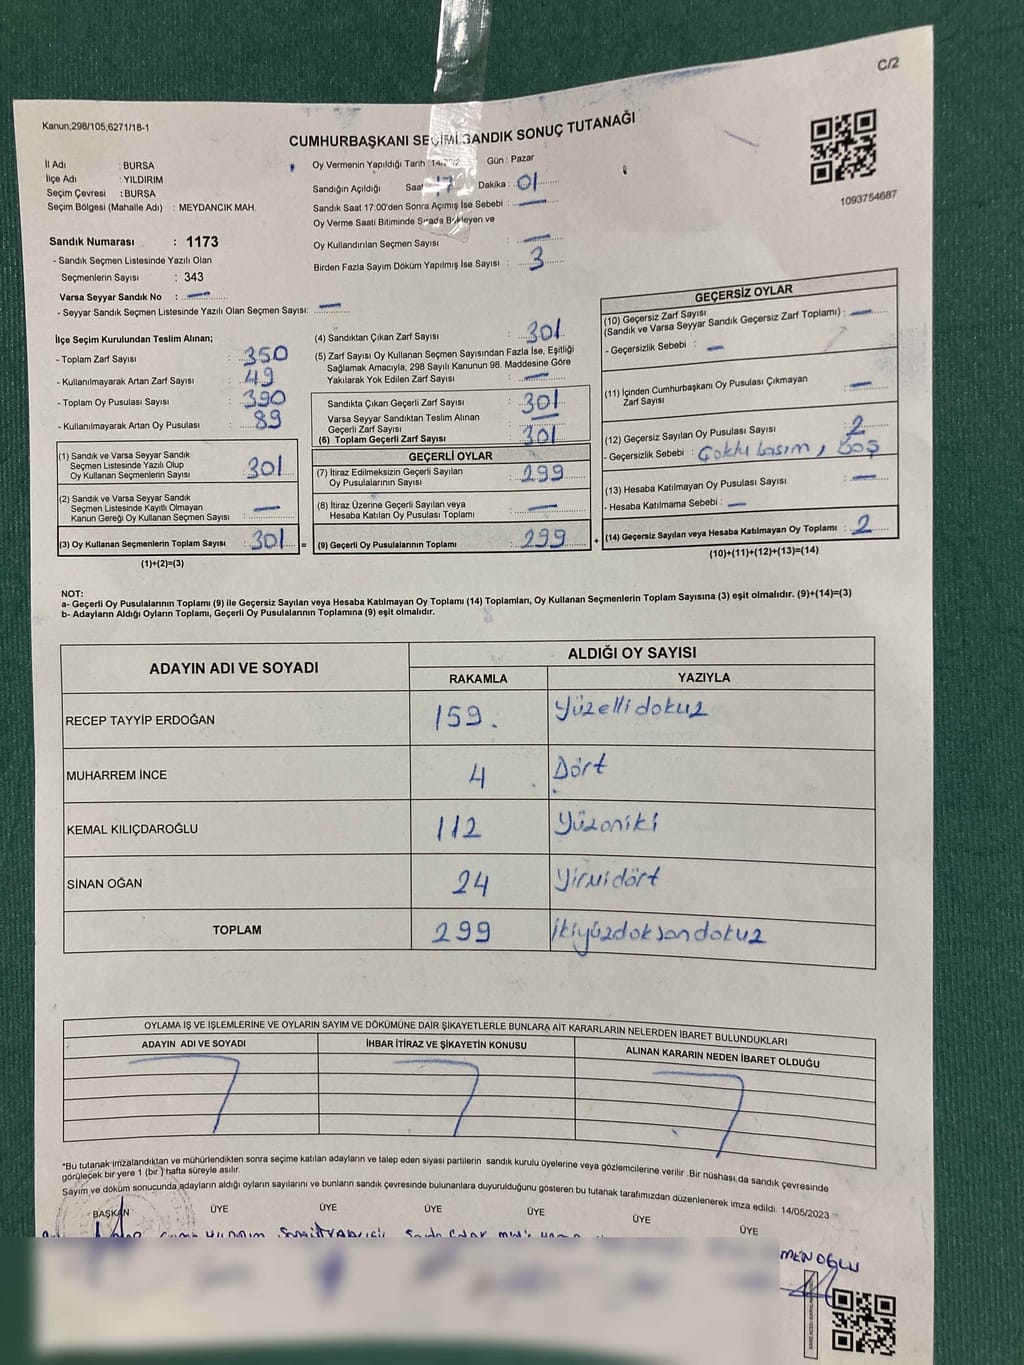 C/2
Kanun;298/105;6271/18-1
CUMHURBAŞKANI SEÇİMİ SANDIK SONUÇ TUTANAĞI
1093754687
İl Adı : BURSA
İlçe Adı : YILDIRIM
Seçim Çevresi : BURSA
Seçim Bölgesi (Mahalle Adı) : MEYDANCIK MAH.
Oy Vermenin Yapıldığı Tarih : Gün : Pazar
Sandığın Açıldığı Saat 17 Dakika : 01
Sandık Saat 17:00'den Sonra Açımış İse Sebebi : —
Oy Verme Saati Bitiminde Sırada Bekleyen ve
Oy Kullandırılan Seçmen Sayısı : —
Birden Fazla Sayım Döküm Yapılmış İse Sayısı : 3
Sandık Numarası : 1173
- Sandık Seçmen Listesinde Yazılı Olan
Seçmenlerin Sayısı : 343
Varsa Seyyar Sandık No : —
- Seyyar Sandık Seçmen Listesinde Yazılı Olan Seçmen Sayısı: —
İlçe Seçim Kurulundan Teslim Alınan;
- Toplam Zarf Sayısı : 350
- Kullanılmayarak Artan Zarf Sayısı : 49
- Toplam Oy Pusulası Sayısı : 390
- Kullanılmayarak Artan Oy Pusulası : 89
(1) Sandık ve Varsa Seyyar Sandık
Seçmen Listesinde Yazılı Olup
Oy Kullanan Seçmenlerin Sayısı : 301
(2) Sandık ve Varsa Seyyar Sandık
Seçmen Listesinde Kayıtlı Olmayan
Kanun Gereği Oy Kullanan Seçmen Sayısı : —
(3) Oy Kullanan Seçmenlerin Toplam Sayısı : 301 =
(1)+(2)=(3)
(4) Sandıktan Çıkan Zarf Sayısı : 301
(5) Zarf Sayısı Oy Kullanan Seçmen Sayısından Fazla İse, Eşitliği
Sağlamak Amacıyla; 298 Sayılı Kanunun 98. Maddesine Göre
Yakılarak Yok Edilen Zarf Sayısı : —
Sandıkta Çıkan Geçerli Zarf Sayısı : 301
Varsa Seyyar Sandıktan Teslim Alınan
Geçerli Zarf Sayısı : —
(6) Toplam Geçerli Zarf Sayısı : 301
GEÇERLİ OYLAR
(7) İtiraz Edilmeksizin Geçerli Sayılan
Oy Pusulalarının Sayısı : 299
(8) İtiraz Üzerine Geçerli Sayılan veya
Hesaba Katılan Oy Pusulası Toplamı : —
(9) Geçerli Oy Pusulalarının Toplamı : 299 +
GEÇERSİZ OYLAR
(10) Geçersiz Zarf Sayısı
(Sandık ve Varsa Seyyar Sandık Geçersiz Zarf Toplamı) : —
- Geçersizlik Sebebi : —
(11) İçinden Cumhurbaşkanı Oy Pusulası Çıkmayan
Zarf Sayısı : —
(12) Geçersiz Sayılan Oy Pusulası Sayısı : 2
- Geçersizlik Sebebi : Çoklu basım, Boş
(13) Hesaba Katılmayan Oy Pusulası Sayısı : —
- Hesaba Katılmama Sebebi : —
(14) Geçersiz Sayılan veya Hesaba Katılmayan Oy Toplamı : 2
(10)+(11)+(12)+(13)=(14)
NOT:
a- Geçerli Oy Pusulalarının Toplamı (9) ile Geçersiz Sayılan veya Hesaba Katılmayan Oy Toplamı (14) Toplamları, Oy Kullanan Seçmenlerin Toplam Sayısına (3) eşit olmalıdır. (9)+(14)=(3)
b- Adayların Aldığı Oyların Toplamı, Geçerli Oy Pusulalarının Toplamına (9) eşit olmalıdır.
ADAYIN ADI VE SOYADI ALDIĞI OY SAYISI
RAKAMLA YAZIYLA
RECEP TAYYİP ERDOĞAN 159. Yüzellidokuz
MUHARREM İNCE 4 Dört
KEMAL KILIÇDAROĞLU 112 Yüzoniki
SİNAN OĞAN 24 Yirmidört
TOPLAM 299 İkiyüzdoksandokuz
OYLAMA İŞ VE İŞLEMLERİNE VE OYLARIN SAYIM VE DÖKÜMÜNE DAİR ŞİKAYETLERLE BUNLARA AİT KARARLARIN NELERDEN İBARET BULUNDUKLARI
ADAYIN ADI VE SOYADI İHBAR İTİRAZ VE ŞİKAYETİN KONUSU ALINAN KARARIN NEDEN İBARET OLDUĞU
*Bu tutanak imzalandıktan ve mühürlendikten sonra seçime katılan adayların ve talep eden siyasi partilerin sandık kurulu üyelerine veya gözlemcilerine verilir. Bir nüshası da sandık çevresinde
görülecek bir yere 1 (bir ) hafta süreyle asılır.
Sayım ve döküm sonucunda adayların aldığı oyların sayılarını ve bunların sandık çevresinde bulunanlara duyurulduğunu gösteren bu tutanak tarafımızdan düzenlenerek imza edildi. 14/05/2023
BAŞKAN ÜYE ÜYE ÜYE ÜYE ÜYE ÜYE
MENOĞLU